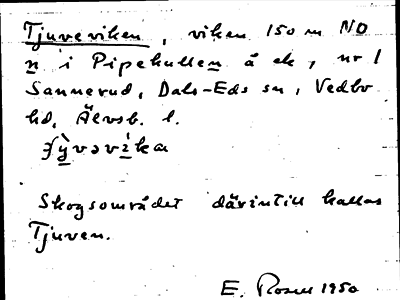 Tjuveviken, viken 150 m NO
n i Pipekullen å ek, nr 1
Sannerud, Dals-Eds sn, Vedbo
hd, Älvsb. l.
ʒỳvəvìka
Skogsområdet därintill kallas
Tjuven.
E. Rosell 1950